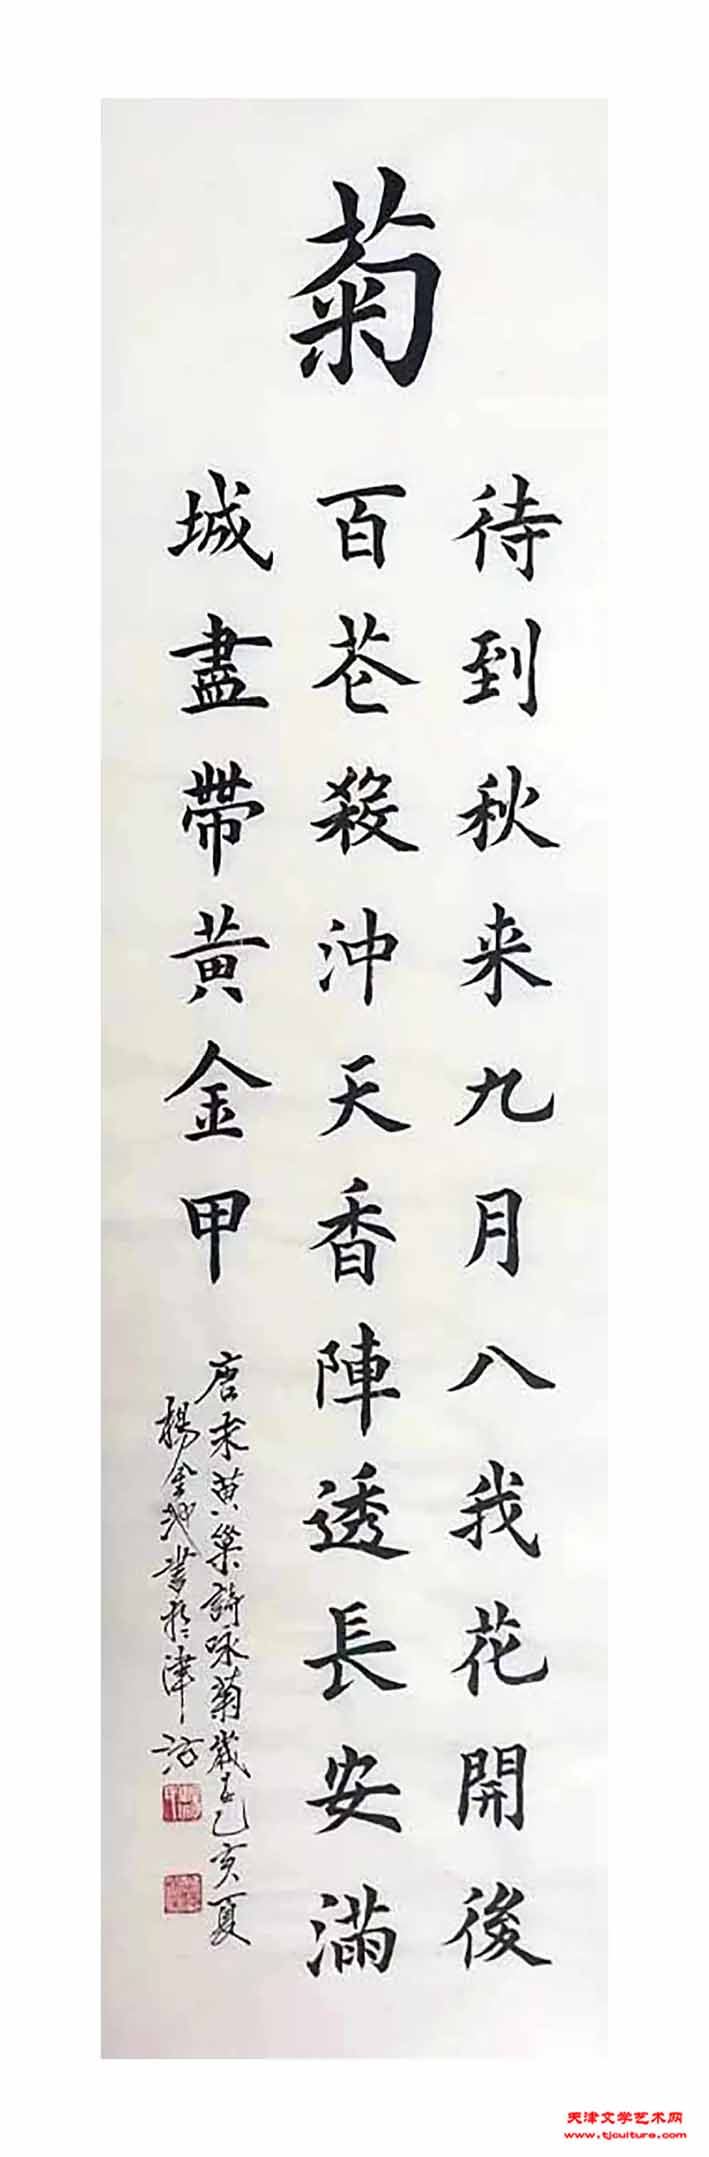 菊
待到秋来九月八我花開後
百花殺沖天香陣透長安滿
城盡帶黃金甲
唐末黄巢詩咏菊歲在己亥夏
楊金池書於津沽
天津文学艺术网
www.tjculture.com